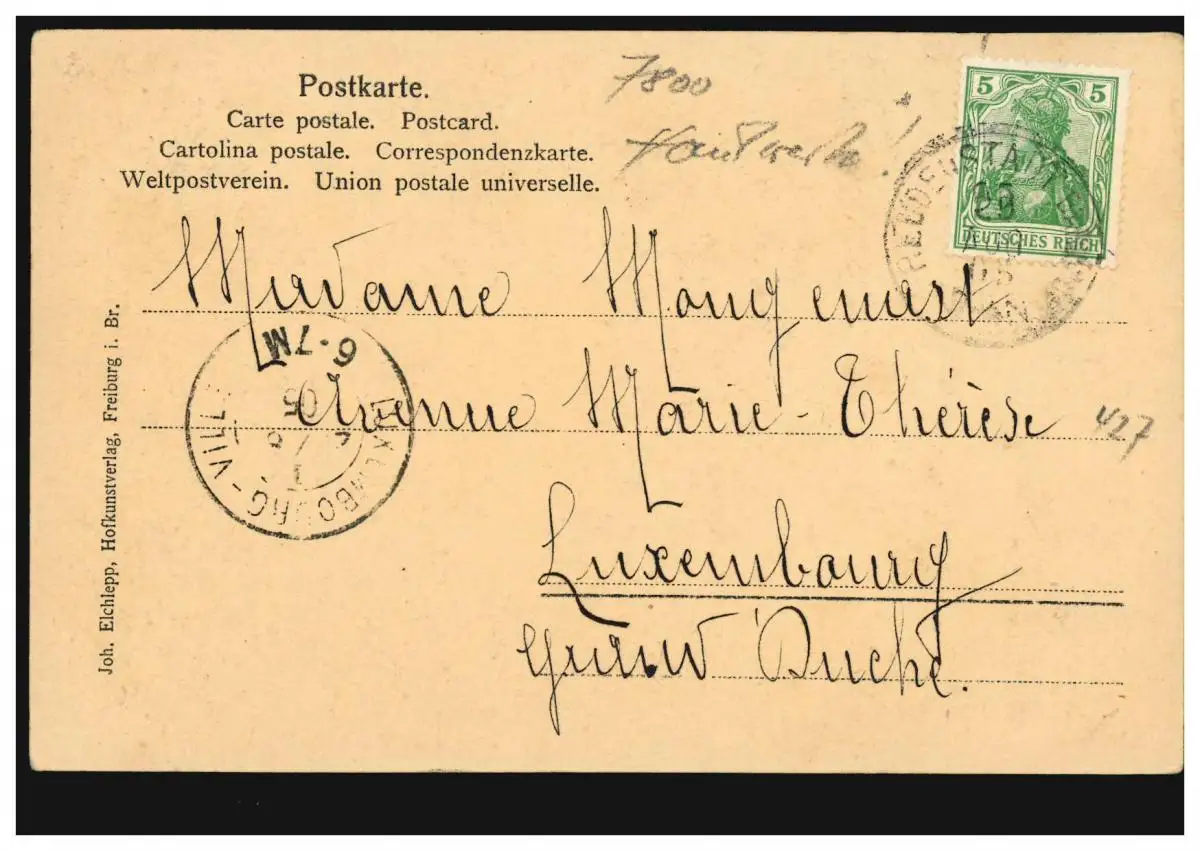 Postkarte.
Carte postale. Postcard.
Cartolina postale. Correspondenzkarte.
Weltpostverein. Union postale universelle.
7800
5 5
DEUTSCHES REICH
Madame
Avenue Marie-Thérèse
427
Luxembourg
Grand Duché.
LUXEMBOURG-VILLE
6-7M
05
Joh. Elchlepp, Hofkunstverlag, Freiburg i. Br.